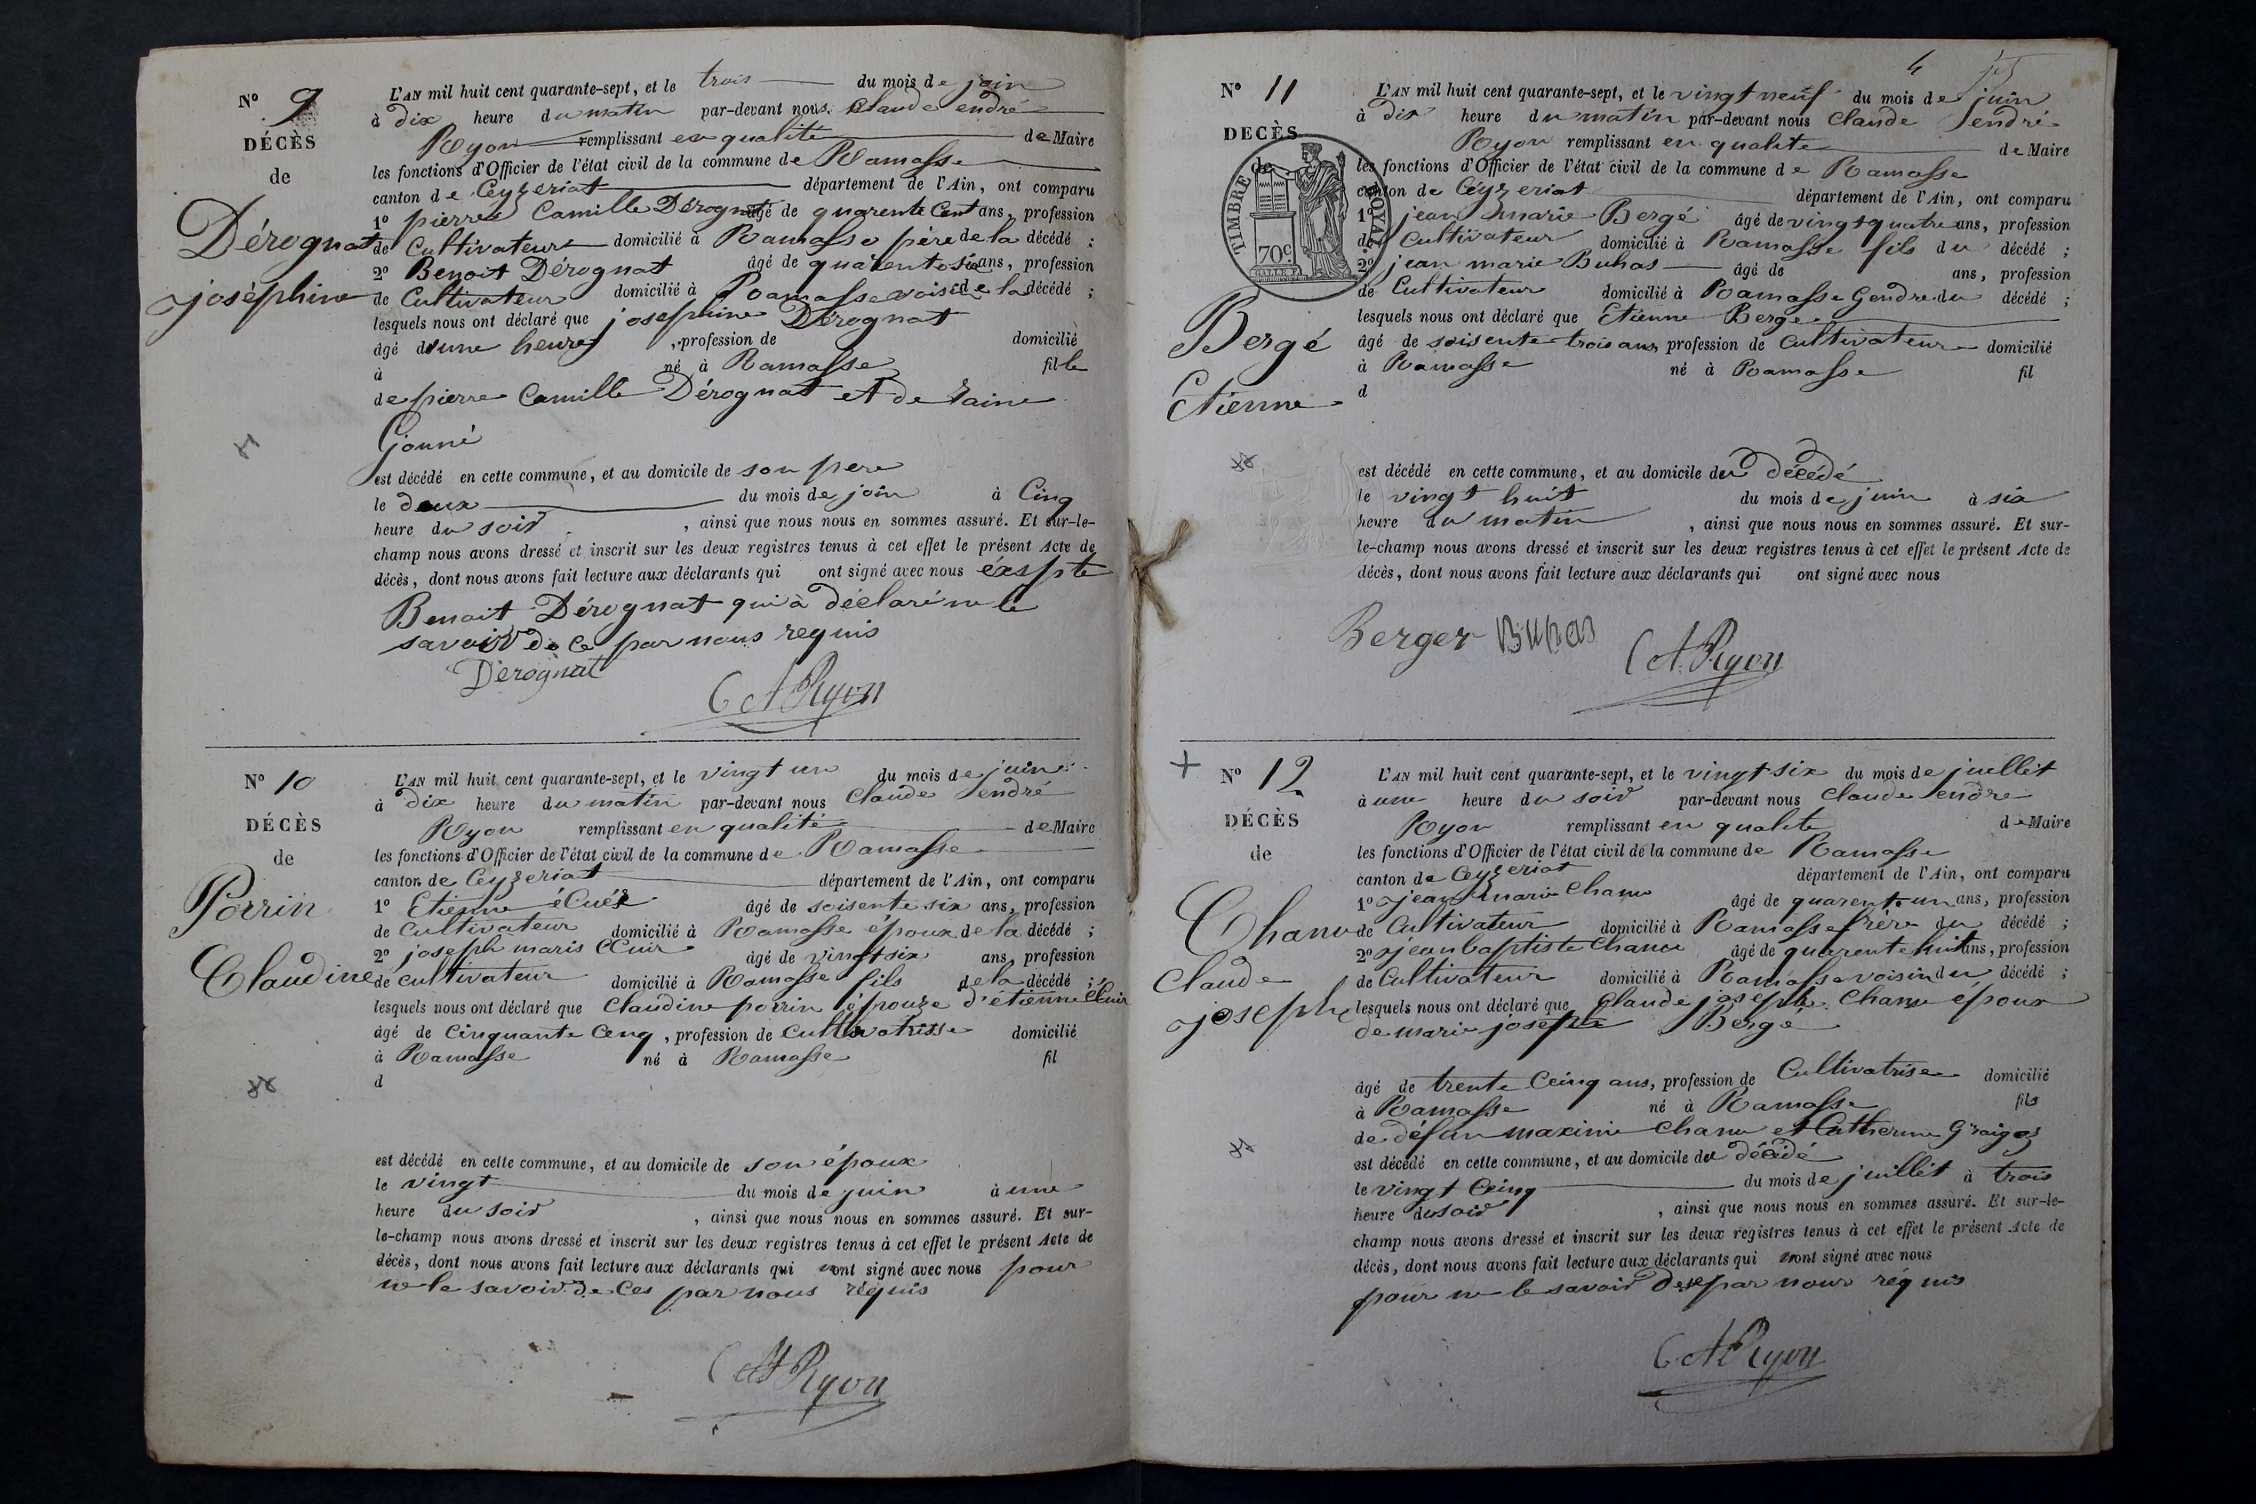 N° 9
DÉCÈS
de
Dérognat
joséphine
L'AN mil huit cent quarante-sept, et le trois du mois de join
à dix heure du matin par-devant nous Claude endré
Ryon remplissant en qualité de Maire
les fonctions d'Officier de l'état civil de la commune de Ramasse
canton de Ceyzeriat département de l'Ain, ont comparu
1° pierre Camille Dérognat âgé de quarente Cent ans, profession
de Cultivateur domicilié à Ramasse père de la décédé ;
2° Benoit Dérognat âgé de quarente six ans, profession
de Cultivateur domicilié à Ramasse voisi de la décédé ;
lesquels nous ont déclaré que josephine Dérognat
âgé d'une heure, profession de domicilié
à né à Ramasse fille
de pierre Camille Dérognat et de raine
Gonné
est décédé en cette commune, et au domicile de son pere
le deux du mois de join à Cinq
heure du soir, ainsi que nous nous en sommes assuré. Et sur-le-
champ nous avons dressé et inscrit sur les deux registres tenus à cet effet le présent Acte de
décès, dont nous avons fait lecture aux déclarants qui ont signé avec nous éxspte
Benoit Dérognat qui à déclaré ne le
savoir de ce par nous requis
Dérognat
C A Ryon
N° 10
DÉCÈS
de
Porrin
Claudine
L'AN mil huit cent quarante-sept, et le vingt un du mois de juin
à dix heure du matin par-devant nous Claude endré
Ryon remplissant en qualité de Maire
les fonctions d'Officier de l'état civil de la commune de Ramasse
canton de Ceyzeriat département de l'Ain, ont comparu
1° Etienne âgé de soisente six ans, profession
de Cultivateur domicilié à Ramasse époux de la décédé ;
2° joseph maris Cuir âgé de vingt six ans, profession
de cultivateur domicilié à Ramasse fils de la décédé ;
lesquels nous ont déclaré que Claudine porrin épouze d'étienne Cuir
âgé de Cinquante Cenq, profession de Cultivatrisse domicilié
à Ramasse né à Ramasse fil
d
est décédé en cette commune, et au domicile de son époux
le vingt du mois de juin à une
heure du soir, ainsi que nous nous en sommes assuré. Et sur-
le-champ nous avons dressé et inscrit sur les deux registres tenus à cet effet le présent Acte de
décès, dont nous avons fait lecture aux déclarants qui nont signé avec nous pour
ne le savoir de Ces par nous réquis
C A Ryon
4
N° 11
DECÈS
de
TIMBRE ROYAL
70c
Bergé
Etienne
L'AN mil huit cent quarante-sept, et le vingt neuf du mois de juin
à dix heure du matin par-devant nous Claude endré
Ryon remplissant en qualité de Maire
les fonctions d'Officier de l'état civil de la commune de Ramasse
canton de Ceyzeriat département de l'Ain, ont comparu
1° jean marie Bergé âgé de vingt quatre ans, profession
de Cultivateur domicilié à Ramasse fils du décédé ;
2° jean marie Buhas âgé de ans, profession
de Cultivateur domicilié à Ramasse Gendre du décédé ;
lesquels nous ont déclaré que Etienne Berge
âgé de soisente trois ans, profession de Cultivateur domicilié
à Ramasse né à Ramasse fil
d
est décédé en cette commune, et au domicile du décédé
le vingt huit du mois de juin à six
heure du matin, ainsi que nous nous en sommes assuré. Et sur-
le-champ nous avons dressé et inscrit sur les deux registres tenus à cet effet le présent Acte de
décès, dont nous avons fait lecture aux déclarants qui ont signé avec nous
Berger Buhas C A Ryon
N° 12
DÉCÈS
de
Chanu
Claude
joseph
L'AN mil huit cent quarante-sept, et le vingt six du mois de juellet
à une heure du soir par-devant nous Claude endre
Ryon remplissant en qualité de Maire
les fonctions d'Officier de l'état civil de la commune de Ramasse
canton de Ceyzeriat département de l'Ain, ont comparu
1° jean marie Chanu âgé de quarente un ans, profession
de Cultivateur domicilié à Ramasse frère du décédé ;
2° jean baptiste Chanu âgé de quarente huit ans, profession
de Cultivateur domicilié à Ramasse voisin du décédé ;
lesquels nous ont déclaré que Claude joseph Chanu époux
de marie josephe Bergé
âgé de trente Ceinq ans, profession de Cultivatrise domicilié
à Ramasse né à Ramasse fils
de défun maximi Chanu et Catherine
est décédé en cette commune, et au domicile du décédé
le vingt Ceinq du mois de juillet à trois
heure du soir, ainsi que nous nous en sommes assuré. Et sur-le-
champ nous avons dressé et inscrit sur les deux registres tenus à cet effet le présent Acte de
décès, dont nous avons fait lecture aux déclarants qui nont signé avec nous
pour ne le savoir de par nous réquis
C A Ryon